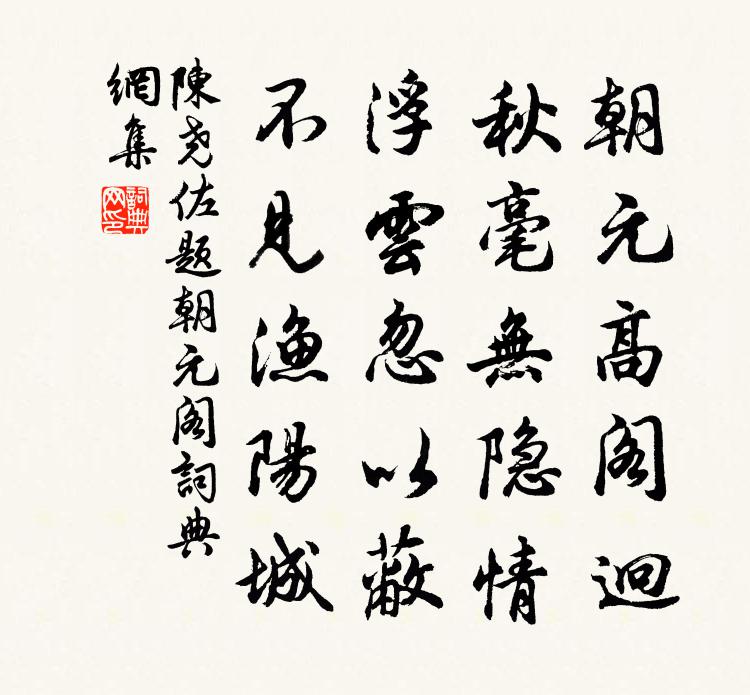 朝元高阁迥
秋毫無隐情
浮雲忽以蔽
不見漁陽城
陳尧佐题朝元阁詞典
網集
詞典网印